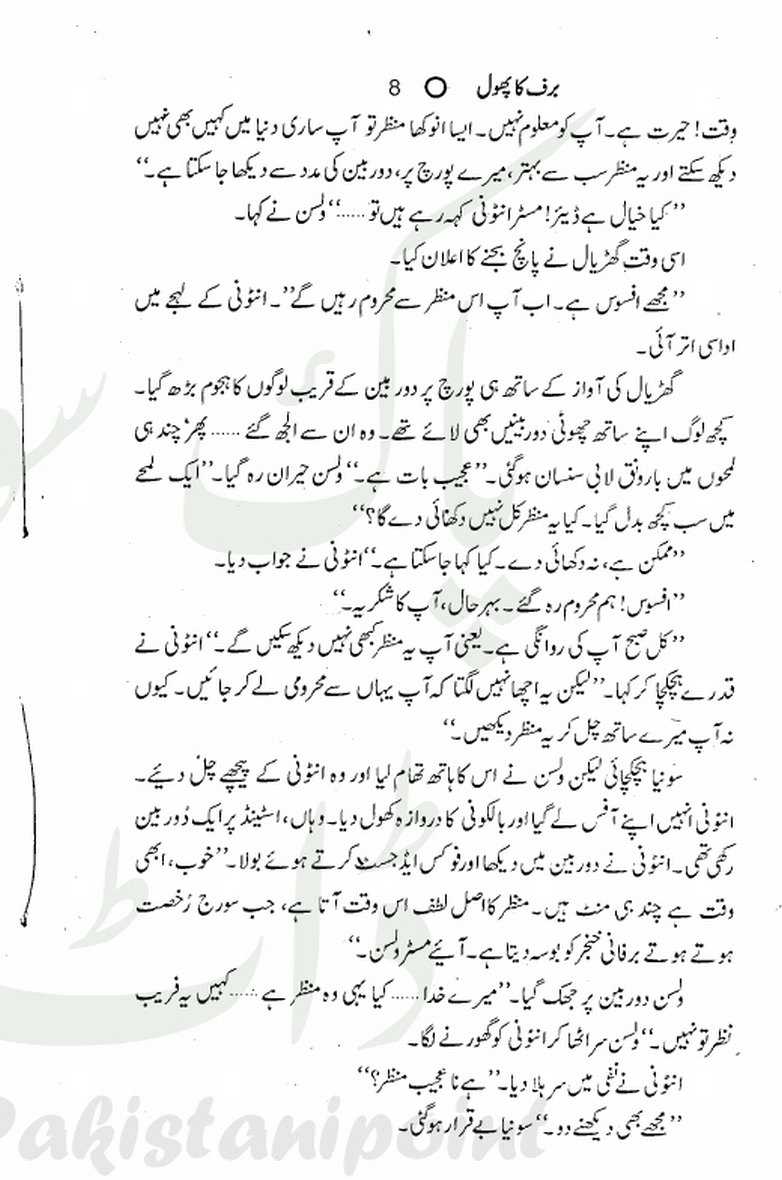 برف کا پھول O 8
وقت! حیرت ہے۔ آپ کو معلوم نہیں۔ ایسا انوکھا منظر تو آپ ساری دنیا میں کہیں بھی نہیں
دیکھ سکتے اور یہ منظر سب سے بہتر، میرے پورچ پر، دوربین کی مدد سے دیکھا جا سکتا ہے۔‘‘
’’کیا خیال ہے ڈیئر! مسٹر انٹونی کہہ رہے ہیں تو .....‘‘ ولسن نے کہا۔
اسی وقت گھڑیال نے پانچ بجنے کا اعلان کیا۔
’’مجھے افسوس ہے۔ اب آپ اس منظر سے محروم رہیں گے’’۔ انٹونی کے لہجے میں
اداسی اتر آئی۔
گھڑیال کی آواز کے ساتھ ہی پورچ پر دوربین کے قریب لوگوں کا ہجوم بڑھ گیا۔
کچھ لوگ اپنے ساتھ چھوٹی دوربینیں بھی لائے تھے۔ وہ ان سے الجھ گئے ...... پھر‘ چند ہی
لمحوں میں بارونق لابی سنسان ہو گئی۔ ’’عجیب بات ہے۔‘‘ ولسن حیران رہ گیا۔ ’’ایک لمحے
میں سب کچھ بدل گیا۔ کیا یہ منظر کل نہیں دکھائی دے گا؟‘‘
’’ممکن ہے، نہ دکھائی دے۔ کیا کہا جا سکتا ہے۔‘‘ انٹونی نے جواب دیا۔
’’افسوس! ہم محروم رہ گئے۔ بہرحال، آپ کا شکریہ۔‘‘
’’کل صبح آپ کی روانگی ہے۔ یعنی آپ یہ منظر کبھی نہیں دیکھ سکیں گے۔‘‘ انٹونی نے
قدرے ہچکچا کر کہا۔ ’’لیکن یہ اچھا نہیں لگتا کہ آپ یہاں سے محرومی لے کر جائیں۔ کیوں
نہ آپ میرے ساتھ چل کر یہ منظر دیکھیں۔‘‘
سونیا ہچکچائی لیکن ولسن نے اس کا ہاتھ تھام لیا اور وہ انٹونی کے پیچھے چل دیئے۔
انٹونی انہیں اپنے آفس لے گیا اور بالکونی کا دروازہ کھول دیا۔ وہاں، اسٹینڈ پر ایک دُوربین
رکھی تھی۔ انٹونی نے دوربین میں دیکھا اور فوکس ایڈجسٹ کرتے ہوئے بولا۔ ’’خوب، ابھی
وقت ہے چند ہی منٹ ہیں۔ منظر کا اصل لطف اس وقت آتا ہے، جب سورج رُخصت
ہوتے ہوتے برفانی خنجر کو بوسہ دیتا ہے۔ آیئے مسٹر ولسن۔‘‘
ولسن دوربین پر جھک گیا۔ ’’میرے خدا ...... کیا یہی وہ منظر ہے ...... کہیں یہ فریب
نظر تو نہیں۔‘‘ ولسن سر اٹھا کر انٹونی کو گھورنے لگا۔
انٹونی نے نفی میں سر ہلا دیا۔ ’’ہے نا عجیب منظر؟‘‘
’’مجھے بھی دیکھنے دو۔‘‘ سونیا بے قرار ہو گئی۔
Pakistanipoint